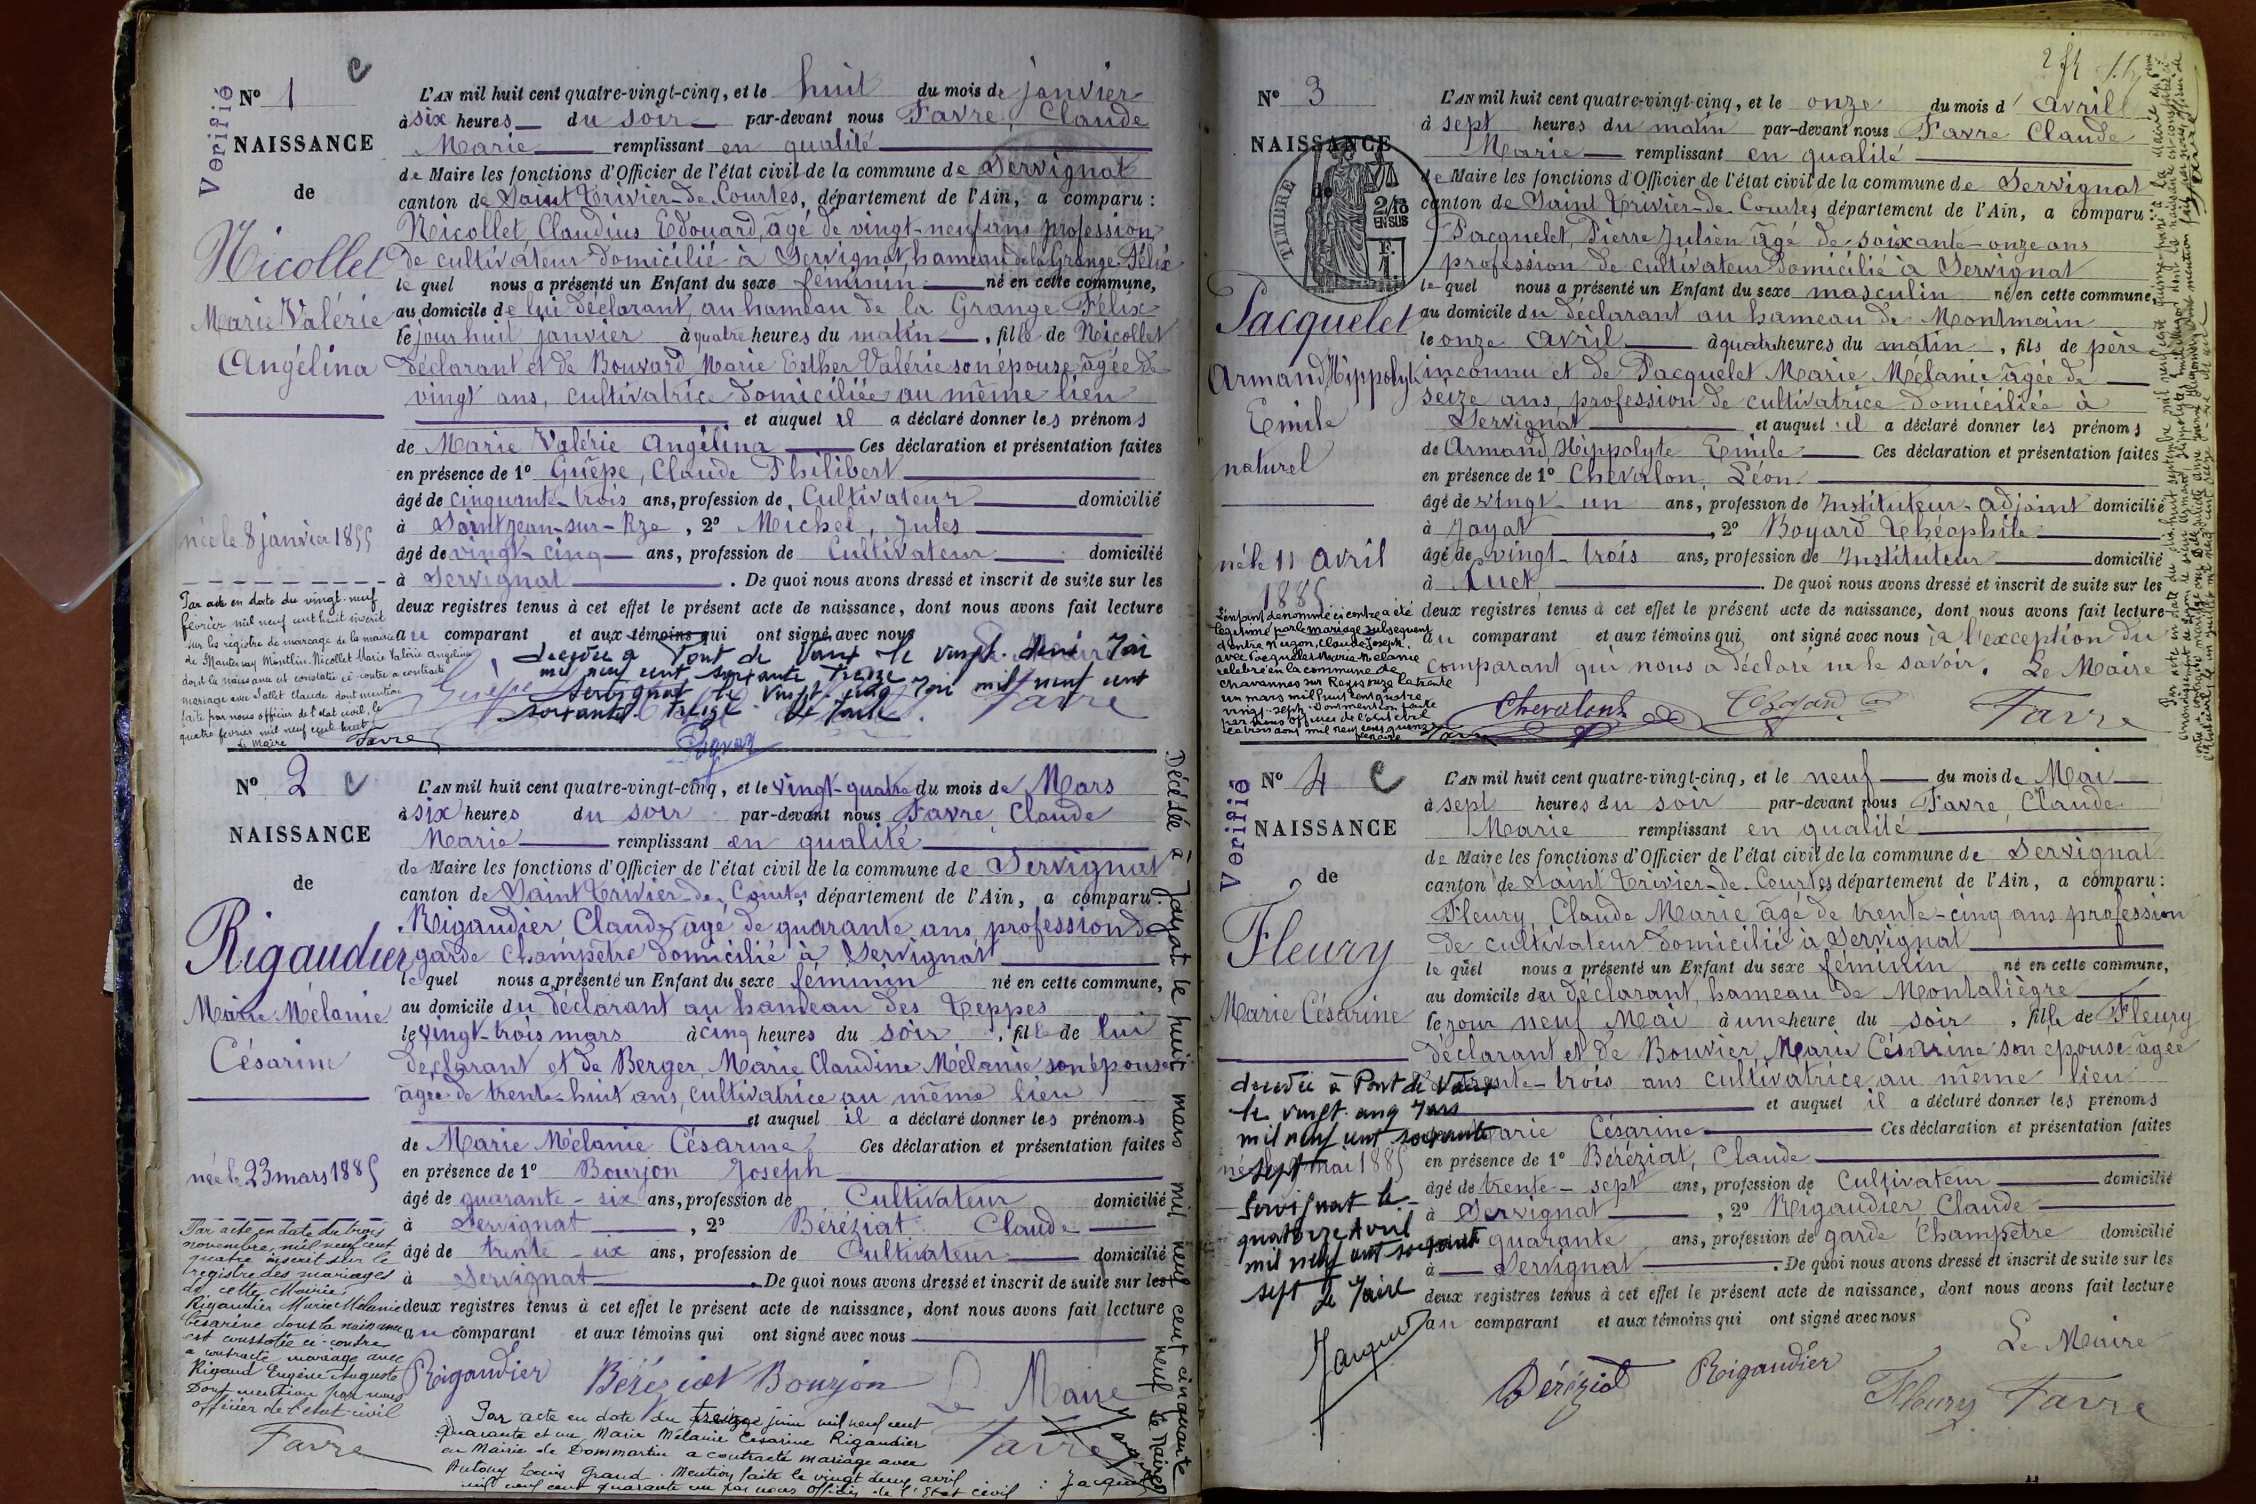 Vérifié
Nº 1
NAISSANCE
de
Nicollet
Marie Valérie
Angélina
née le 8 janvier 1855
Par acte en date du vingt-neuf
février mil neuf cent huit inscrit
sur les registre de mariage de la mairie
de Mantenay Montlin Nicollet Marie Valérie Angélina
dont la naissance est constatée ci-contre a contracté
mariage avec Jollet Claude dont mention
faite par nous officier de l'état civil, le
quatre février mil neuf cent huit
Le Maire Favre
L'AN mil huit cent quatre-vingt-cinq, et le huit du mois de janvier
à six heures du soir par-devant nous Favre, Claude
Marie remplissant en qualité
de Maire les fonctions d'Officier de l'état civil de la commune de Servignat
canton de Saint Trivier-de-Courtes, département de l'Ain, a comparu :
Nicollet Claudius Edouard, âgé de vingt-neuf ans profession
de cultivateur domicilié à Servignat, hameau de la Grange Félix
le quel nous a présenté un Enfant du sexe féminin né en cette commune,
au domicile de lui déclarant, au hameau de la Grange Félix
le jour huit janvier à quatre heures du matin, fille de Nicollet
déclarant et de Bouvard Marie Esther Valérie son épouse âgée de
vingt ans, cultivatrice domiciliée au même lieu
et auquel il a déclaré donner les prénoms
de Marie Valérie Angélina Ces déclaration et présentation faites
en présence de 1º Guêpe, Claude Philibert
âgé de cinquante-trois ans, profession de Cultivateur domicilié
à Saint Jean-sur-Rze, 2º Michel, Jules
âgé de vingt-cinq ans, profession de Cultivateur domicilié
à Servignat. De quoi nous avons dressé et inscrit de suite sur les
deux registres tenus à cet effet le présent acte de naissance, dont nous avons fait lecture
au comparant et aux témoins qui ont signé avec nous
décédée à Pont de Vaux le vingt deux Mai
mil neuf cent soixante treize
Servignat le vingt cinq Mai mil neuf cent
soixante treize. Le Maire.
Guêpe Favre
Nº 2
NAISSANCE
de
Rigaudier
Marie Mélanie
Césarine
née le 23 mars 1885
Par acte en date du trois
novembre, mil neuf cent
quatre inscrit sur le
registre des mariages
de cette Mairie,
Rigaudier Marie Mélanie
Césarine dont la naissance
est constatée ci-contre
a contracté mariage avec
Rigaud Eugène Auguste
Dont mention par nous
officier de l'état-civil
Favre
L'AN mil huit cent quatre-vingt-cinq, et le vingt-quatre du mois de Mars
à six heures du soir par-devant nous Favre, Claude
Marie remplissant en qualité
de Maire les fonctions d'Officier de l'état civil de la commune de Servignat
canton de Saint Trivier-de-Courtes, département de l'Ain, a comparu :
Rigaudier Claude âgé de quarante ans profession de
garde champêtre domicilié à Servignat
le quel nous a présenté un Enfant du sexe féminin né en cette commune,
au domicile du déclarant au hameau des Teppes
le vingt-trois mars à cinq heures du soir, fille de lui
déclarant et de Berger, Marie Claudine Mélanie son épouse
âgée de trente-huit ans, cultivatrice au même lieu
et auquel il a déclaré donner les prénoms
de Marie Mélanie Césarine Ces déclaration et présentation faites
en présence de 1º Bourjon Joseph
âgé de quarante-six ans, profession de Cultivateur domicilié
à Servignat, 2º Béréziat Claude
âgé de trente-six ans, profession de Cultivateur domicilié
à Servignat. De quoi nous avons dressé et inscrit de suite sur les
deux registres tenus à cet effet le présent acte de naissance, dont nous avons fait lecture
au comparant et aux témoins qui ont signé avec nous
Rigaudier Béréziat Bourjon Le Maire
Favre
Par acte en date du treize juin mil neuf cent
quarante et un Marie Mélanie Césarine Rigaudier
en Mairie de Dommartin a contracté mariage avec
Antony Louis Grand. Mention faite le vingt deux avril
mil neuf cent quarante un par nous Officier de l'Etat civil
Décédée à Jayat le huit mars mil neuf cent cinquante
neuf Le Maire
Nº 3
NAISSANCE
de
TIMBRE
2/10
EN SUS
F.
1.
Pacquelet
Armand Hippolyte
Emile
naturel
né le 11 avril
1885
L'enfant dénommé ci contre a été
légitimé par le mariage subséquent
d'entre Nugon, Claude Joseph,
avec Pacquelet Marie Mélanie
célébré en la commune de
Chavannes sur Reyssouze le trente
un mars mil huit cent quatre
vingt-sept. Dont mention faite
par nous officier de l'état civil
L'AN mil huit cent quatre-vingt-cinq, et le onze du mois d'avril
à sept heures du matin par-devant nous Favre Claude
Marie remplissant en qualité
de Maire les fonctions d'Officier de l'état civil de la commune de Servignat
canton de Saint Trivier-de-Courtes département de l'Ain, a comparu :
Pacquelet, Pierre Julien âgé de soixante-onze ans
profession de cultivateur domicilié à Servignat
le quel nous a présenté un Enfant du sexe masculin né en cette commune,
au domicile du déclarant au hameau de Montmain
le onze avril à quatre heures du matin, fils de père
inconnu et de Pacquelet Marie Mélanie âgée de
seize ans, profession de cultivatrice domiciliée à
Servignat et auquel il a déclaré donner les prénoms
de Armand Hippolyte Emile Ces déclaration et présentation faites
en présence de 1º Chevalon, Léon
âgé de vingt-un ans, profession de Instituteur-adjoint domicilié
à Jayat, 2º Boyard Théophile
âgé de vingt-trois ans, profession de Instituteur domicilié
à . De quoi nous avons dressé et inscrit de suite sur les
deux registres tenus à cet effet le présent acte de naissance, dont nous avons fait lecture
au comparant et aux témoins qui ont signé avec nous à l'exception du
comparant qui nous a déclaré ne le savoir. Le Maire
Chevalon Boyard Favre
Vérifié
Nº 4
NAISSANCE
de
Fleury
Marie Césarine
née le 9 mai 1885
décédée à Pont de Vaux
le vingt cinq Mars
mil neuf cent soixante
sept
Servignat le
quatorze Avril
mil neuf cent soixante
sept Le Maire
L'AN mil huit cent quatre-vingt-cinq, et le neuf du mois de Mai
à sept heures du soir par-devant nous Favre, Claude
Marie remplissant en qualité
de Maire les fonctions d'Officier de l'état civil de la commune de Servignat
canton de Saint Trivier-de-Courtes département de l'Ain, a comparu :
Fleury, Claude Marie âgé de trente-cinq ans profession
de cultivateur domicilié à Servignat
le quel nous a présenté un Enfant du sexe féminin né en cette commune,
au domicile du déclarant, hameau de Montaliègre
le jour neuf Mai à une heure du soir, fille de Fleury
déclarant et de Bouvier, Marie Césarine son épouse âgée
de trente-trois ans cultivatrice au même lieu
et auquel il a déclaré donner les prénoms
de Marie Césarine Ces déclaration et présentation faites
en présence de 1º Béréziat, Claude
âgé de trente-sept ans, profession de Cultivateur domicilié
à Servignat, 2º Rigaudier, Claude
âgé de quarante ans, profession de garde Champêtre domicilié
à Servignat. De quoi nous avons dressé et inscrit de suite sur les
deux registres tenus à cet effet le présent acte de naissance, dont nous avons fait lecture
au comparant et aux témoins qui ont signé avec nous
Le Maire
Béréziat Rigaudier Fleury Favre